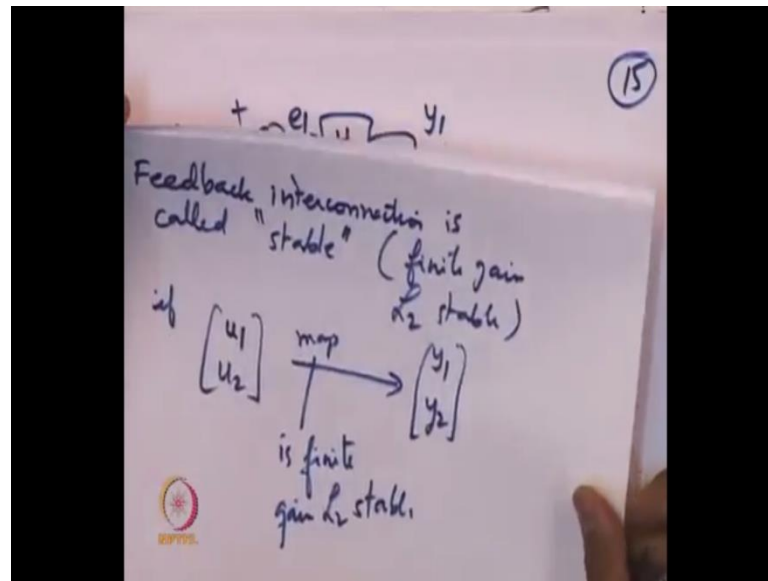 15
+ e1 y1
Feedback interconnection is
called "stable" (finite gain
L2 stable)
if [u1 u2] map [y1 y2]
is finite
gain L2 stable.
NPTEL